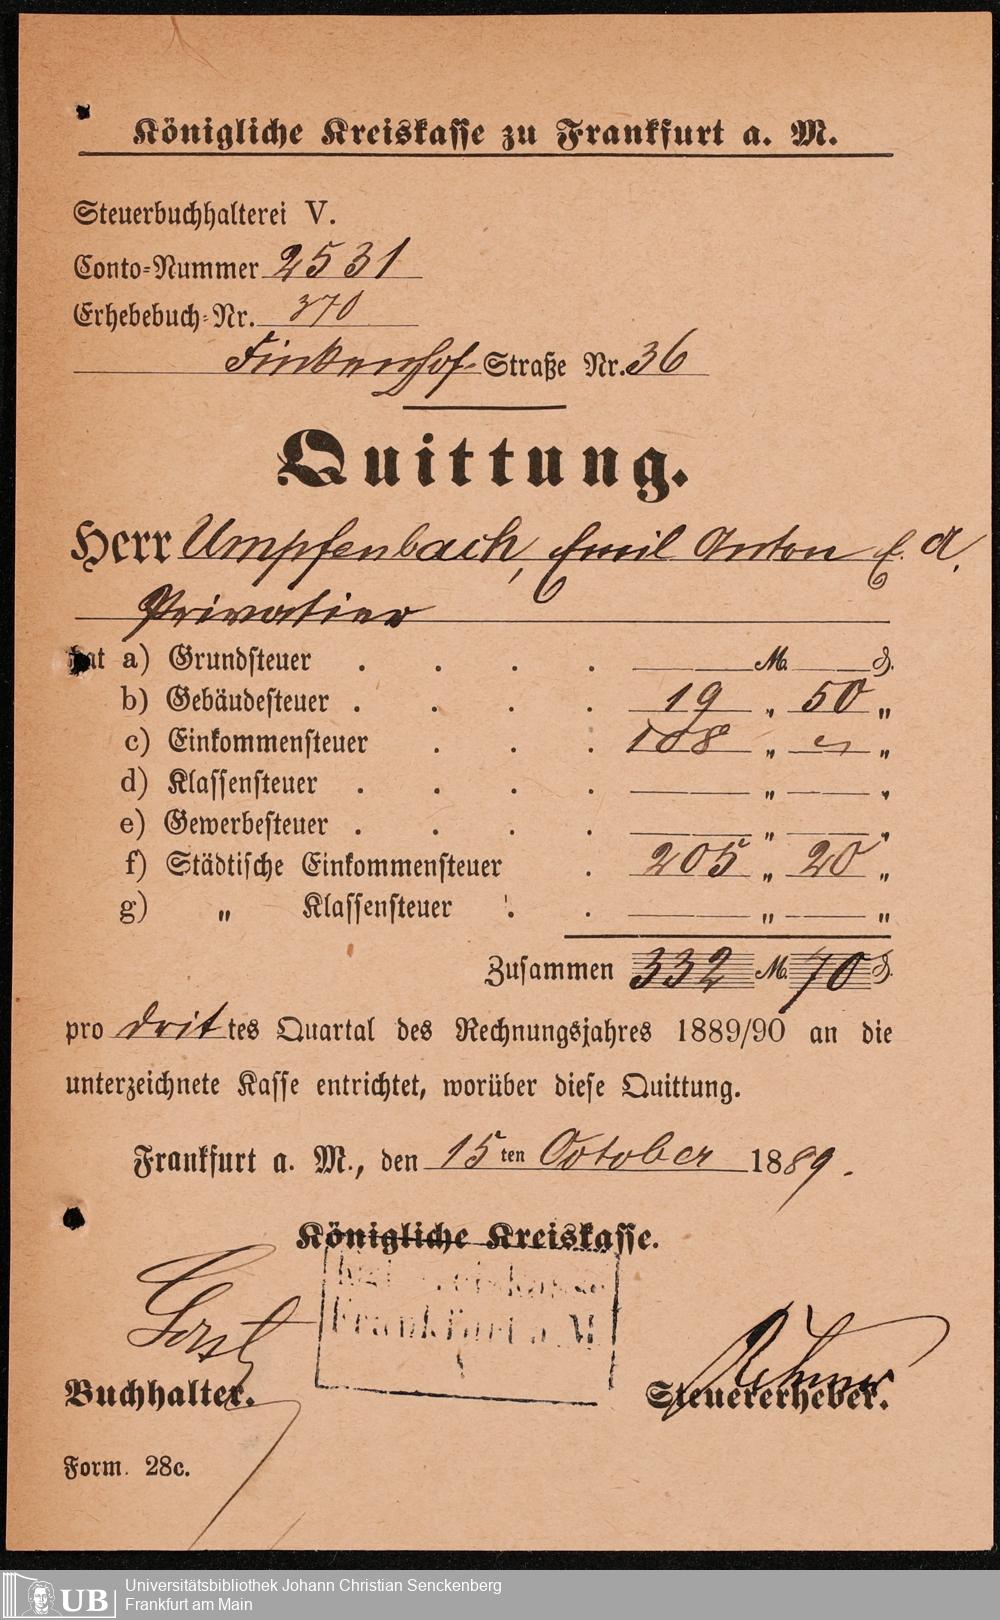 Königliche Kreiskasse zu Frankfurt a. M.
Steuerbuchhalterei V.
Conto-Nummer 2531
Erhebebuch-Nr. 370
Finkenhof-Straße Nr. 36
Quittung.
Herr Umpfenbach, Emil Anton E. A.
Privatier
hat a) Grundsteuer . . . . M. ₰.
b) Gebäudesteuer . . . . 19 „ 50 „
c) Einkommensteuer . . . 108 „ „
d) Klassensteuer . . . . „ „
e) Gewerbesteuer . . . . „ „
f) Städtische Einkommensteuer . 205 „ 20 „
g) „ Klassensteuer . . „ „
Zusammen 332 M. 70 ₰.
pro drittes Quartal des Rechnungsjahres 1889/90 an die
unterzeichnete Kasse entrichtet, worüber diese Quittung.
Frankfurt a. M., den 15ten October 1889.
Königliche Kreiskasse.
Frankfurt a. M.
Buchhalter. Steuererheber.
Form. 28c.
UB Universitätsbibliothek Johann Christian Senckenberg
Frankfurt am Main